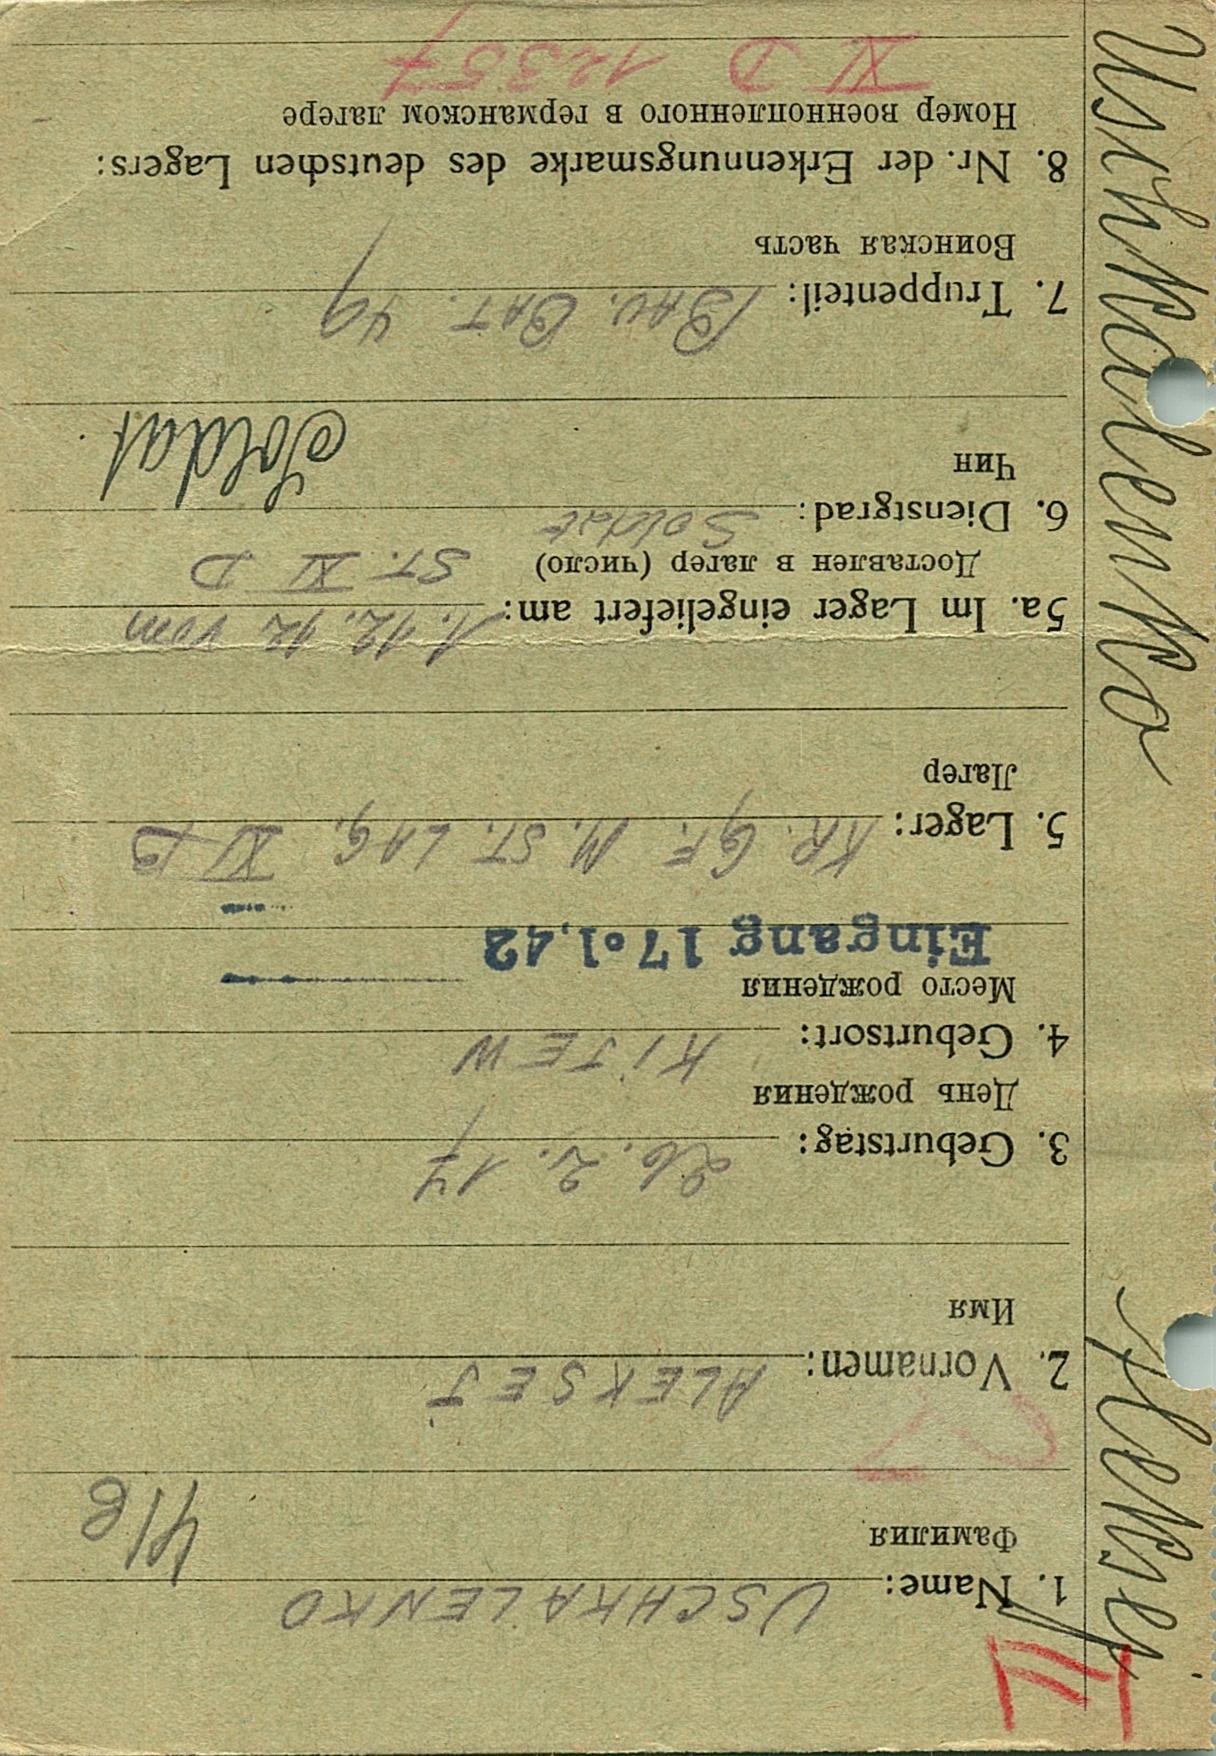 II
1. Name: USCHKALENKO
Фамилия
41e
2. Vornamen: ALEKSEJ
Имя
3. Geburtstag: 26. 2. 17
День рождения
4. Geburtsort: KIJEW
Место рождения
Eingang 17.1.42
5. Lager: KR. GF. M. ST. LAG. XI D
Лагер
5a. Im Lager eingeliefert am: 1. 12. 12 vom
Доставлен в лагер (число) ST. XI D
6. Dienstgrad: Soldat
Чин
Soldat
7. Truppenteil: BAU. BAT. 49
Воинская часть
8. Nr. der Erkennungsmarke des deutschen Lagers:
Номер военнопленного в германском лагере
XI D 12357
Uschkalenko Aleksej